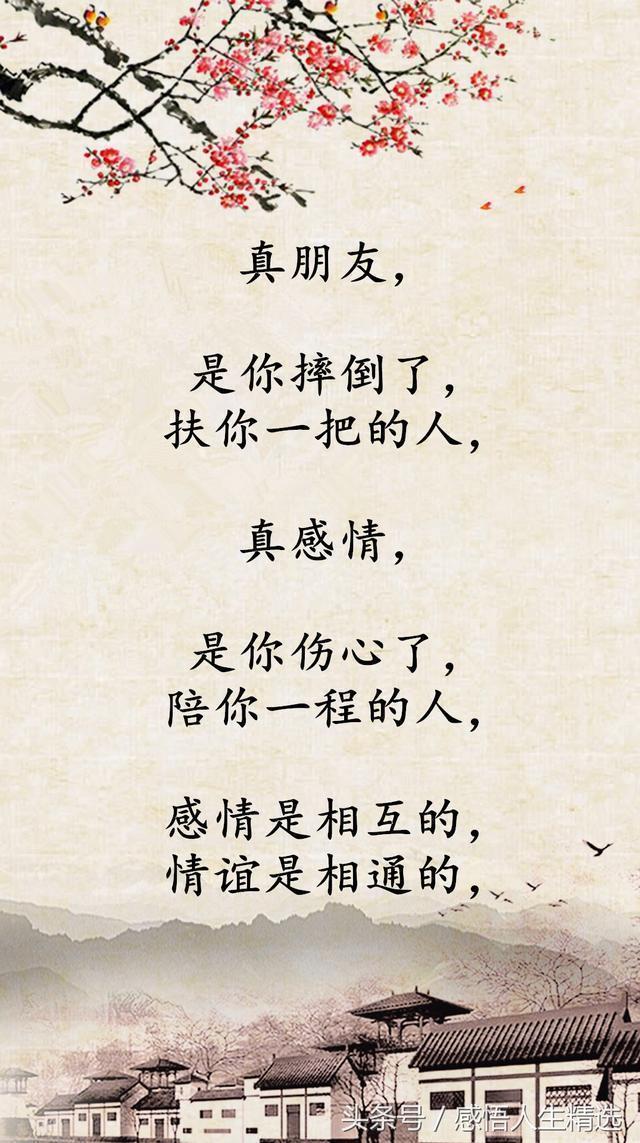 真朋友，
是你摔倒了，
扶你一把的人，
真感情，
是你伤心了，
陪你一程的人，
感情是相互的，
情谊是相通的，
头条号/感悟人生精选